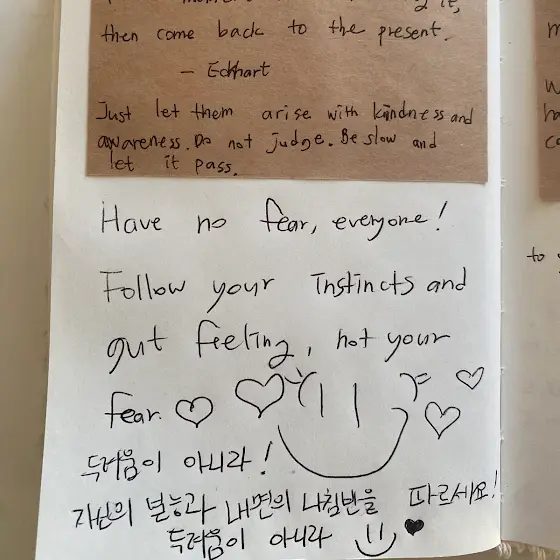 it,
then come back to the present.
— Eckhart
Just let them arise with kindness and
awareness. Do not judge. Be slow and
let it pass.
Have no fear, everyone!
Follow your instincts and
gut feeling, not your
fear. ♡
두려움이 아니라!
자신의 본능과 내면의 나침반을 따르세요!
두려움이 아니라
to